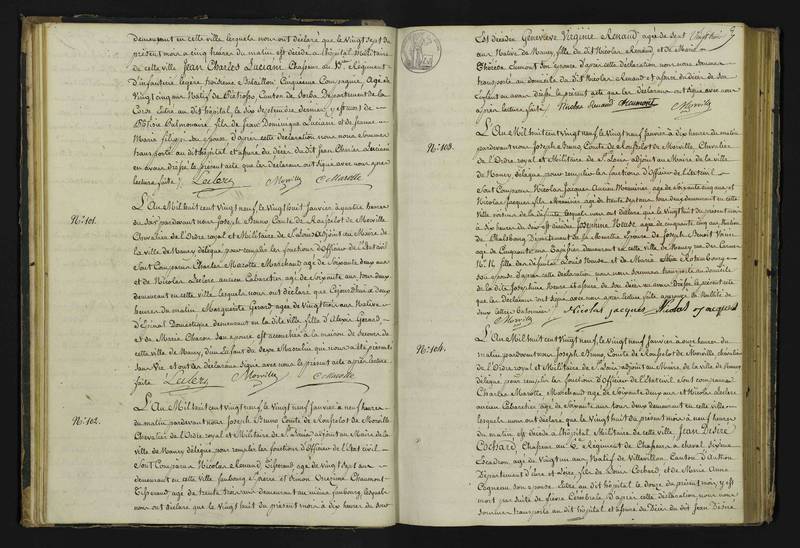 demeurant en cette ville, lesquels nous ont déclaré que le vingt sept du
présent mois à cinq heures du matin est décédé à l'hôpital Militaire
de cette ville Jean Charles Luciani Chasseur au Régiment
d'infanterie légère troisième Bataillon Cinquième Compagnie, agé de
Vingt cinq ans Natif de Canton de Département de la
Corse Entré au dit hôpital le dix septembre dernier, y est mort de
Pulmonaire fils de Jean Dominique Luciani et de Jeanne
Marie son épouse d'après cette déclaration nous nous sommes
transporté au dit hôpital et assuré du décès du dit Jean Charles Luciani
en avons dressé le présent acte que les déclarans ont signé avec nous après
lecture faite Leclerc Morville C Marotte
N°: 101.
L'An Mil huit cent Vingt neuf le Vingt huit Janvier à quatre heures
du soir pardevant nous Joseph Bruno Comte de Morville
Chevalier de l'Ordre royal et Militaire de St Louis adjoint au Maire de
la ville de Nancy délégué pour remplir les fonctions d'Officier de l'Etat civil
Sont Comparus Charles Marotte Marchand agé de Soixante deux ans
et de Nicolas Leclerc ancien Cabaretier agé de Soixante ans tous deux
demeurant en cette ville, lesquels nous ont déclaré que Cejourd'hui à deux
heures du matin Marguerite Gerard agée de Vingt trois ans Native
d'Epinal Domestique demeurant en la dite Ville fille d'Alexis Gerard
et de Marie son épouse est accouchée à la maison de secours de
cette ville de Nancy, d'un Enfant du Sexe Masculin que nous a été présenté
sans Vie et ont les déclarans signé avec nous le présent acte après lecture
faite Leclerc Morville C Marotte
N°: 102.
L'An Mil huit cent Vingt neuf le Vingt neuf Janvier à neuf heures
du matin pardevant nous Joseph Bruno Comte de Morville
Chevalier de l'Ordre royal et Militaire de St Louis adjoint au Maire de la
ville de Nancy délégué pour remplir les fonctions d'Officier de l'Etat civil
Sont Comparus Nicolas Renaud Tisserand agé de vingt sept ans
demeurant en cette ville faubourg St pierre et Chaumont
Tisserand agé de trente trois ans demeurant au même faubourg, lesquels
nous ont déclaré que le Vingt huit du présent mois à dix heures du soir
Est décédée Geneviève Virginie Renaud agée de sept
ans Native de Nancy, fille du dit Nicolas Renaud et de Marie
Thérèse Chaumont son épouse d'après cette déclaration nous nous sommes
transporté au domicile du dit Nicolas Renaud et assuré du décès de son
Enfant en avons dressé le présent acte que les déclarans ont signé avec nous
après lecture faite Nicolas Renaud Chaumont Morville
N°: 103.
L'An Mil huit cent vingt neuf le Vingt neuf Janvier à dix heures du matin
pardevant nous Joseph Bruno Comte de Morville, Chevalier
de l'Ordre royal et Militaire de St Louis adjoint au Maire de la ville
de Nancy, délégué pour remplir les fonctions d'Officier de l'Etat civil
Sont Comparus Nicolas Jacques Ancien Menuisier agé de soixante cinq ans et
Nicolas Jacques fils Menuisier agé de trente sept ans tous deux demeurant en cette
Ville voisins de la défunte lesquels nous ont déclaré que le Vingt huit du présent mois
à dix heures du soir est décédée Josephine Neuse agée de cinquante cinq ans Native
de Phalsbourg Département de la Meurthe Epouse de Joseph Benoit
agé de Cinquante ans Tapissier demeurant en cette ville de Nancy rue des Carmes
N° fille des défunts Louis Neuse et de Marie
son épouse d'après cette déclaration nous nous sommes transporté au domicile
de la dite Josephine Neuse et assuré de son décès en avons dressé le présent acte
que les déclarans ont signé avec nous après lecture faite approuvé la Nullité de
deux lettres Nicolas jacques Nicolas jacques
Morville
N°: 104.
L'An Mil huit cent Vingt neuf, le Vingt neuf Janvier à onze heures du
matin pardevant nous Joseph Bruno Comte de Morville chevalier
de l'Ordre royal et Militaire de St Louis, adjoint au Maire de la ville de Nancy
délégué pour remplir les fonctions d'Officier de l'Etat civil Sont comparus
Charles Marotte, Marchand agé de Soixante deux ans et Nicolas Leclerc
ancien Cabaretier agé de Soixante ans tous deux demeurant en cette ville
lesquels nous ont déclaré que le Vingt huit du présent mois à neuf heures
du matin est décédé à l'hôpital Militaire de cette ville Jean Désiré
Cochard, Chasseur au 2e Régiment de Chasseurs à cheval Sixième
Escadron, agé de Vingt un ans Natif de Villevillon Canton d'Authon
Département d'Eure et Loire, fils de Louis Cochard et de Marie Anne
son épouse, entré au dit hôpital le douze du présent mois, y est
mort par suite de fièvre Cérébrale D'après cette déclaration nous nous
sommes transporté au dit hôpital et assuré du Décès du dit Jean Désiré